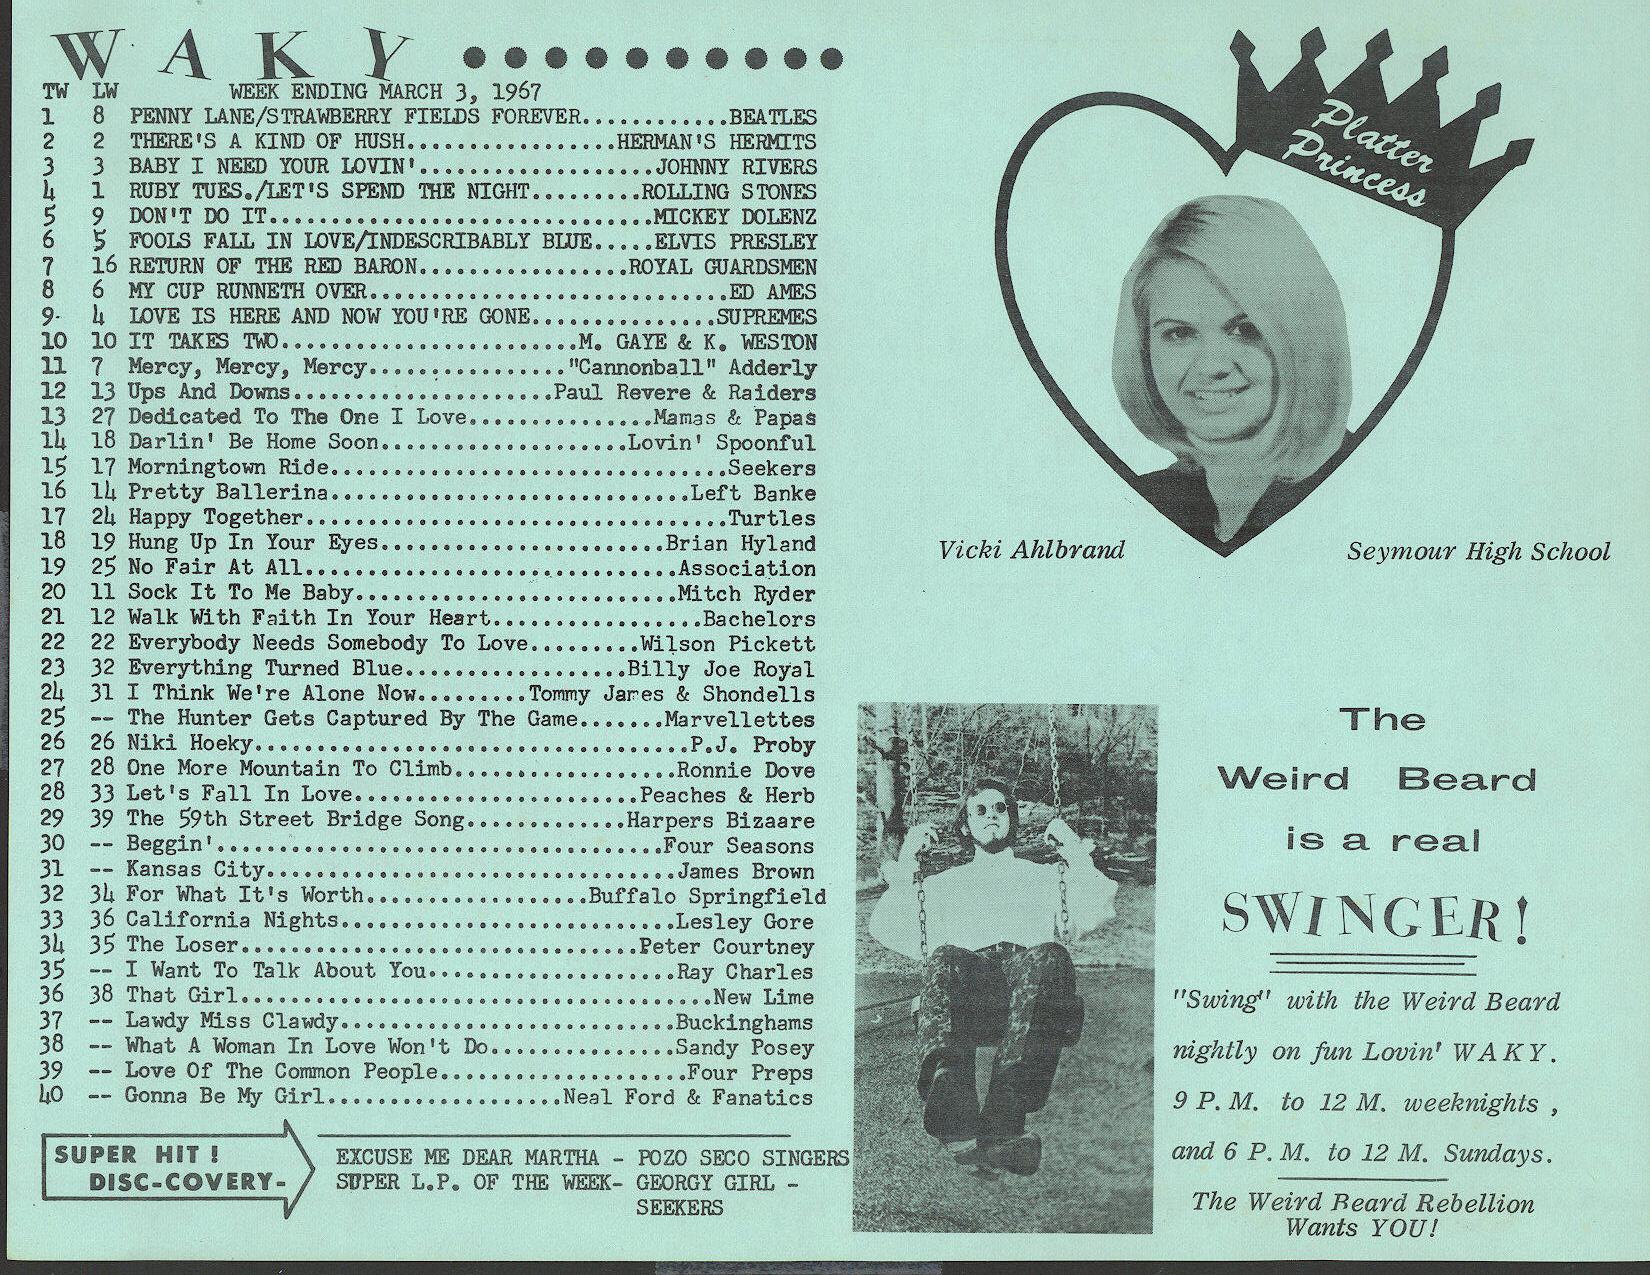 WAKY ..........
TW LW WEEK ENDING MARCH 3, 1967
1 8 PENNY LANE/STRAWBERRY FIELDS FOREVER............BEATLES
2 2 THERE'S A KIND OF HUSH.................HERMAN'S HERMITS
3 3 BABY I NEED YOUR LOVIN'...................JOHNNY RIVERS
4 1 RUBY TUES./LET'S SPEND THE NIGHT.........ROLLING STONES
5 9 DON'T DO IT...............................MICKEY DOLENZ
6 5 FOOLS FALL IN LOVE/INDESCRIBABLY BLUE.....ELVIS PRESLEY
7 16 RETURN OF THE RED BARON.................ROYAL GUARDSMEN
8 6 MY CUP RUNNETH OVER.............................ED AMES
9 4 LOVE IS HERE AND NOW YOU'RE GONE...............SUPREMES
10 10 IT TAKES TWO........................M. GAYE & K. WESTON
11 7 Mercy, Mercy, Mercy................"Cannonball" Adderly
12 13 Ups And Downs.....................Paul Revere & Raiders
13 27 Dedicated To The One I Love...............Mamas & Papas
14 18 Darlin' Be Home Soon....................Lovin' Spoonful
15 17 Morningtown Ride................................Seekers
16 14 Pretty Ballerina.............................Left Banke
17 24 Happy Together..................................Turtles
18 19 Hung Up In Your Eyes.......................Brian Hyland
19 25 No Fair At All..............................Association
20 11 Sock It To Me Baby..........................Mitch Ryder
21 12 Walk With Faith In Your Heart.................Bachelors
22 22 Everybody Needs Somebody To Love.........Wilson Pickett
23 32 Everything Turned Blue..................Billy Joe Royal
24 31 I Think We're Alone Now.........Tommy James & Shondells
25 -- The Hunter Gets Captured By The Game.......Marvellettes
26 26 Niki Hoeky...................................P.J. Proby
27 28 One More Mountain To Climb..................Ronnie Dove
28 33 Let's Fall In Love.......................Peaches & Herb
29 39 The 59th Street Bridge Song.............Harpers Bizaare
30 -- Beggin'....................................Four Seasons
31 -- Kansas City.................................James Brown
32 34 For What It's Worth..................Buffalo Springfield
33 36 California Nights...........................Lesley Gore
34 35 The Loser................................Peter Courtney
35 -- I Want To Talk About You....................Ray Charles
36 38 That Girl......................................New Lime
37 -- Lawdy Miss Clawdy...........................Buckinghams
38 -- What A Woman In Love Won't Do...............Sandy Posey
39 -- Love Of The Common People....................Four Preps
40 -- Gonna Be My Girl...................Neal Ford & Fanatics
SUPER HIT!
DISC-COVERY-
EXCUSE ME DEAR MARTHA - POZO SECO SINGERS
SUPER L.P. OF THE WEEK- GEORGY GIRL -
SEEKERS
Platter
Princess
Vicki Ahlbrand
Seymour High School
The
Weird Beard
is a real
SWINGER!
"Swing" with the Weird Beard
nightly on fun Lovin' WAKY.
9 P.M. to 12 M. weeknights,
and 6 P.M. to 12 M. Sundays.
The Weird Beard Rebellion
Wants YOU!